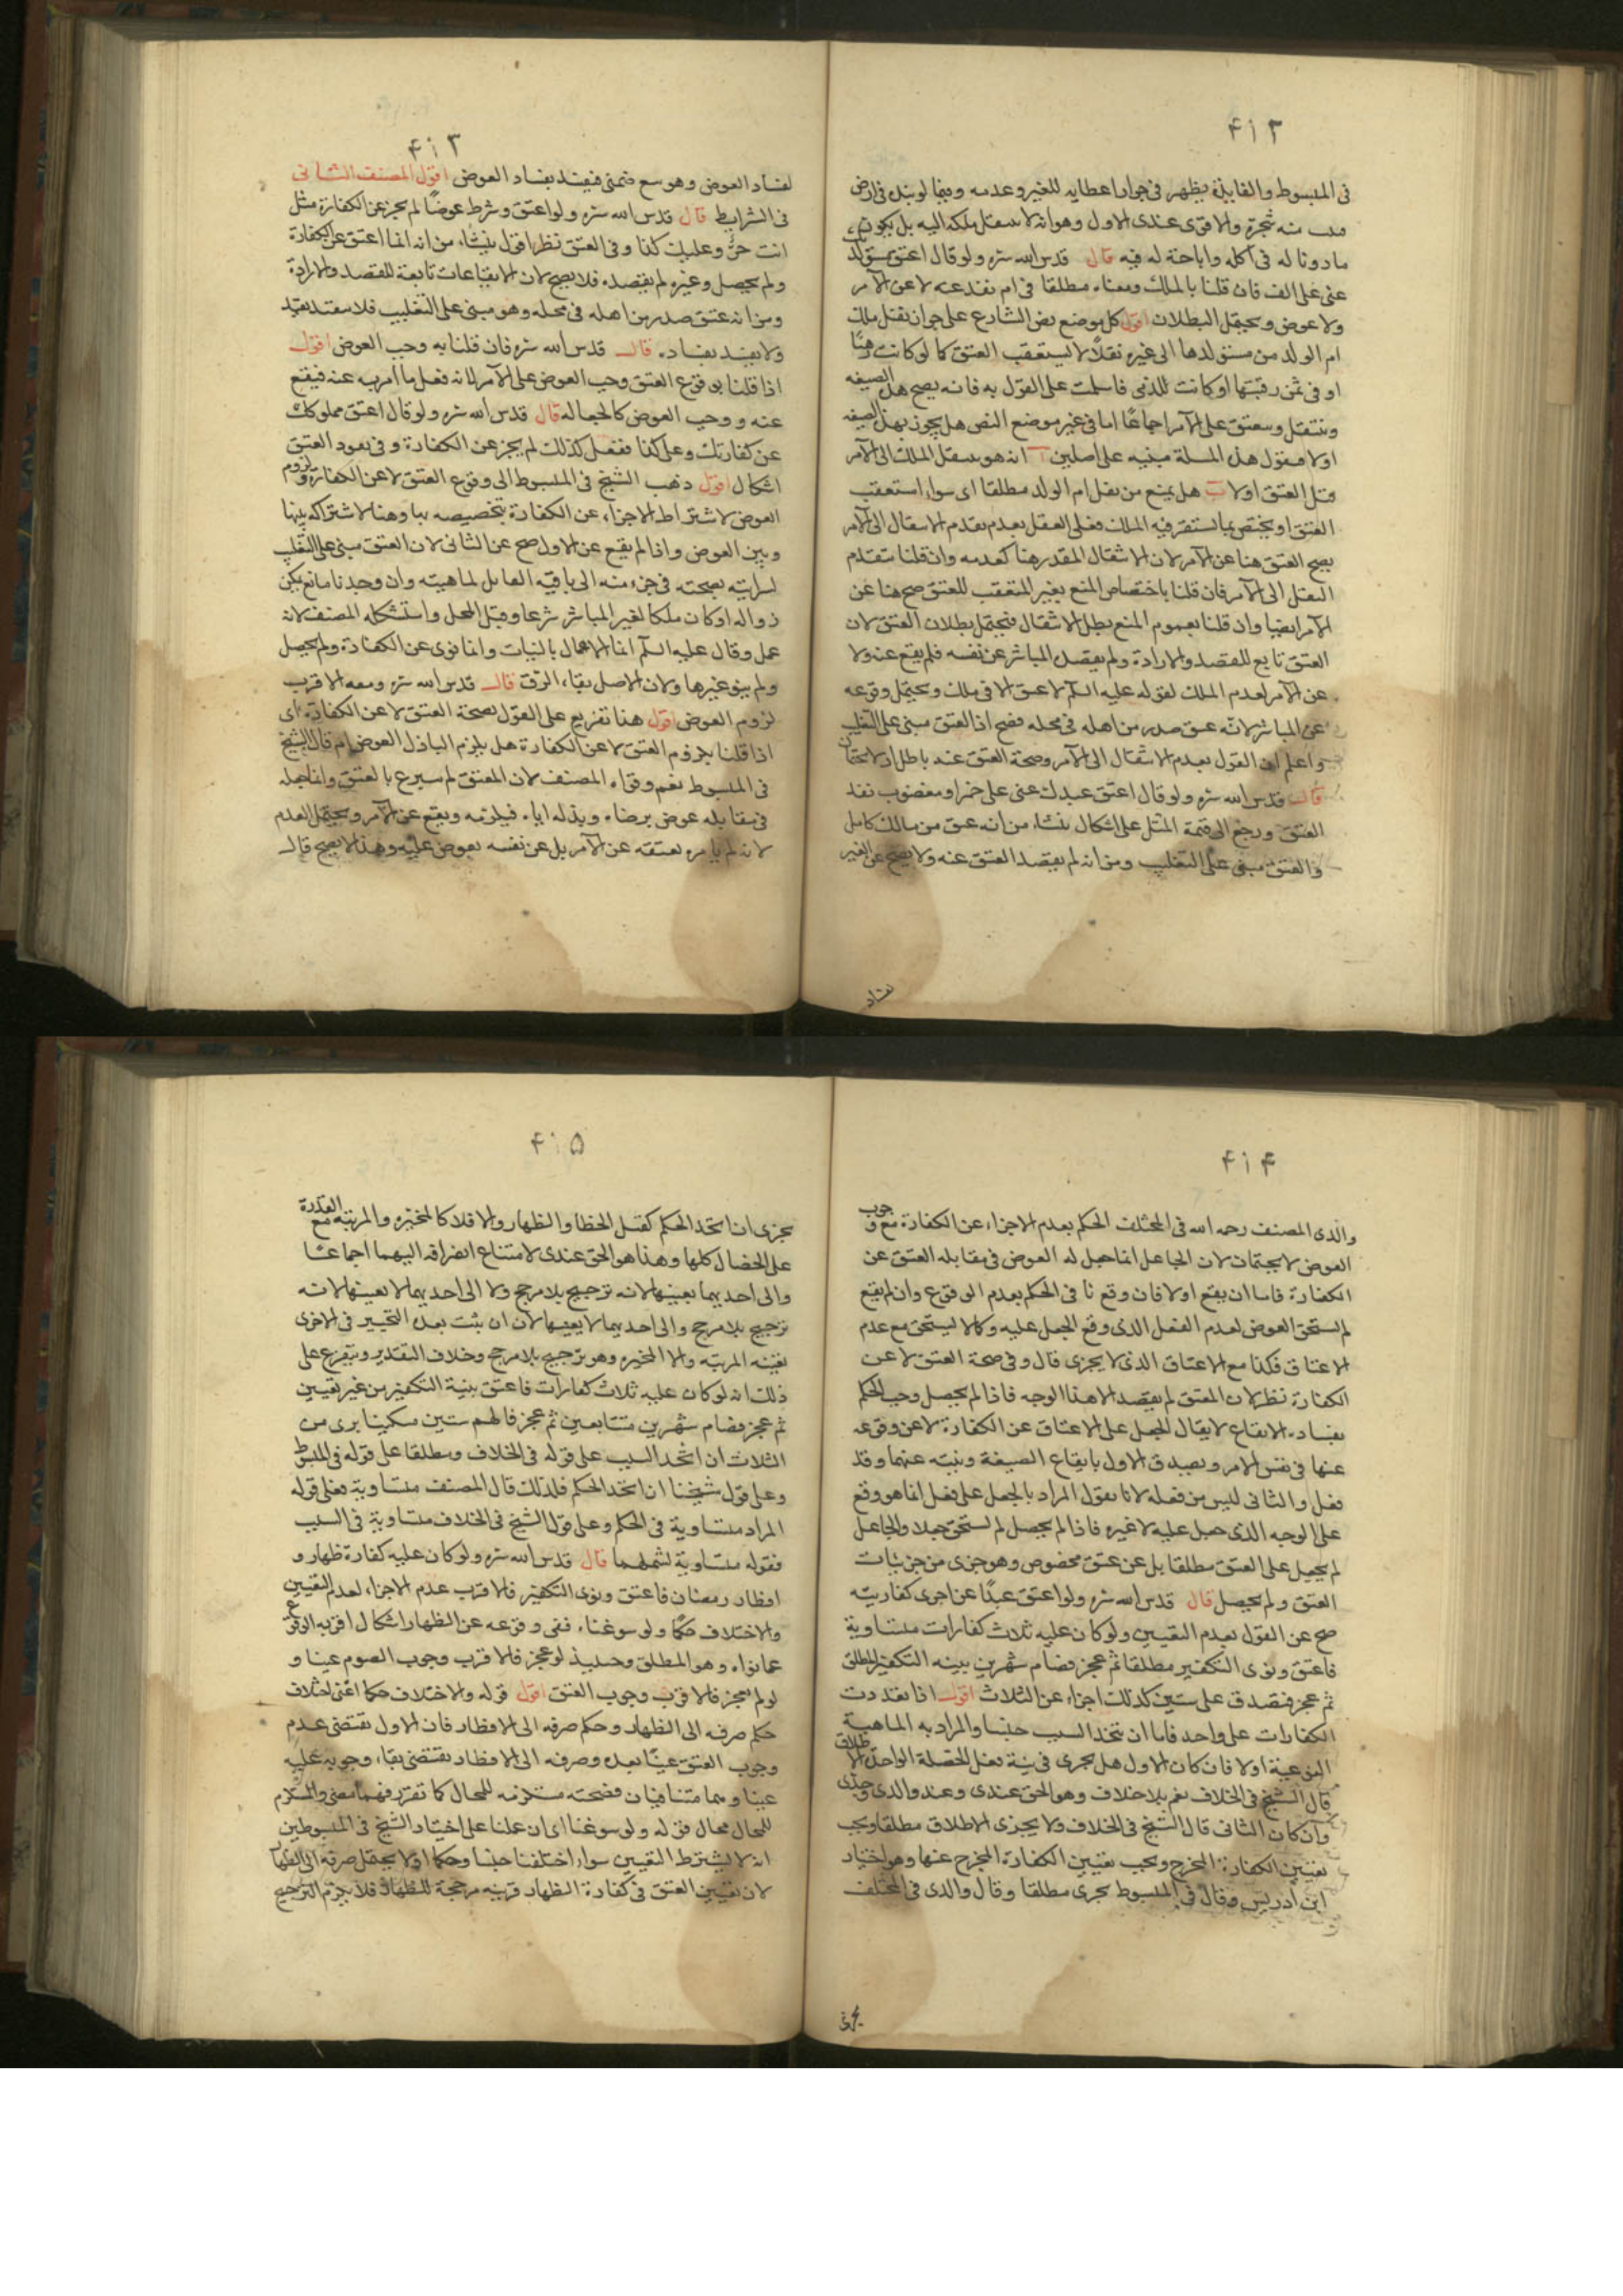 ۴۱۲
فى المبسوط والفايدة يظهر فى جواز اعطايه للغير وعدمه وفيما لو نبت فى ارض
منه شجرة والاقوى عندى الاول وهو انه لا ينتقل ملكه اليه بل يكون
ماذونا له فى اكله واباحة له فيه قال قدس الله سره ولو قال اعتق مستولدتك
عنى على الف فان قلنا بالملك ومنعناه مطلقا فى ام نفذ عنه لا عن الآمر
ولا عوض ويحتمل البطلان اقول كل موضع نص الشارع على جواز نقل ملك
ام الولد من مستولدها الى غيره نقلا لا يستعقب العتق كما لو كانت رهنا
او فى ثمن رقبتها او كانت للذمى فاسلمت على القول به فانه يصح هذه الصيغه
وينتقل ويعتق على الآمر اجماعا اما فى غير موضع النص هل يجوز بهذه الصيغه
اولا فنقول هذه المسلة مبنيه على اصلين آ انه هو ينتقل الملك الى الآمر
قبل العتق اولا ب هل يمنع من نقل ام الولد مطلقا اى سواء استعقب
العتق او يختص بما يستقر فيه الملك فعلى القول بعدم تقدم الانتقال الى الآمر
يصح العتق هنا عن الآمر لان الانتقال المقدر هنا كعدمه وان قلنا بتقدم
النقل الى الآمر فان قلنا باختصاص المنع بغير المتعقب للعتق صح هنا عن
الآمر ايضا وان قلنا بعموم المنع بطل الانتقال فيحتمل بطلان العتق لان
العتق تابع للقصد والارادة ولم يقصد المباشر عن نفسه فلم يقع عنه ولا
عن الآمر لعدم الملك لقوله عليه السلم لا عتق الا فى ملك ويحتمل وقوعه
عن المباشر لانه عتق صدر من اهله فى محله فصح اذ العتق مبنى على التغليب
واعلم ان القول بعدم الانتقال الى الآمر وصحة العتق عنه باطل
قال قدس الله سره ولو قال اعتق عبدك عنى على خمر او مغصوب نفذ
العتق ورجع الى قيمة المثل على اشكال ينشا من انه عتق من مالك كامل
والعتق مبنى على التغليب ومن انه لم يقصد العتق عنه ولا يصح عن الغير
لفساد
۴۱۳
لفساد العوض وهو بيع ضمنى فيفسد بفساد العوض اقول المصنف الثانى
فى الشرايط قال قدس الله سره ولو اعتق وشرط عوضا لم يجز عن الكفارة مثل
انت حر وعليك كذا وفى العتق نظر اقول ينشا من انه انما اعتق عن الكفارة
ولم يحصل وغيره لم يقصده فلا يصح لان الايقاعات تابعة للقصد والارادة
ومن انه عتق صدر من اهله فى محله وهو مبنى على التغليب فلا
ولا يفسد بفساده قال قدس الله سره فان قلنا به وجب العوض اقول
اذا قلنا بوقوع العتق وجب العوض على الآمر لانه فعل ما امر به عنه فيقع
عنه ووجب العوض كالجعاله قال قدس الله سره ولو قال اعتق مملوكك
عن كفارتك وعلى كذا ففعل كذلك لم يجز عن الكفارة وفى نفوذ العتق
اشكال اقول ذهب الشيخ فى المبسوط الى وقوع العتق لا عن الكفارة ولزوم
العوض لاشتراط الاجزاء عن الكفارة بتخصيصه بها وهنا لاشتراكه بينها
وبين العوض واذا لم يقع عن الاول صح عن الثانى لان العتق مبنى على التغليب
لسرايته بصحته فى جزء منه الى باقيه القابل لماهيته وان وجدنا مانع يمكن
زواله او كان ملكا لغير المباشر شرعا وقبل المحل واستشكله المصنف لانه
عمل وقال عليه السلم انما الاعمال بالنيات وانما نوى عن الكفارة ولم يحصل
ولم ينو غيرها ولان الاصل بقاء الرق قال قدس الله سره ومعه الاقرب
لزوم العوض اقول هنا تفريع على القول بصحة العتق لا عن الكفارة اى
اذا قلنا بلزوم العتق لا عن الكفارة هل يلزم الباذل العوض ام قال الشيخ
فى المبسوط نعم وقواه المصنف لان المعتق لم يتبرع بالعتق وانما جعله
فى مقابله عوض برضاه وبذله اياه فيلزمه ويقع عن الآمر ويحتمل العدم
لانه لم يامره بعتقه عن الآمر بل عن نفسه بعوض عليه وهذا لا يصح قال
۴۱۴
والدى المصنف رحمه الله فى المختلف الحكم بعدم الاجزاء عن الكفارة مع وجوب
العوض لا يجتمعان لان الجاعل انما جعل له العوض فى مقابله العتق عن
الكفارة فاما ان يقع اولا فان وقع نافى الحكم بعدم الوقوع وان لم يقع
لم يستحق العوض لعدم الفعل الذى وقع الجعل عليه وكما لا يستحق مع عدم
الاعتاق فكذا مع الاعتاق الذى لا يجزى قال وفى صحة العتق لا عن
الكفارة نظر لان المعتق لم يقصد الا هذا الوجه فاذا لم يحصل وجب الحكم
بفساد الايقاع لا يقال الجعل على الاعتاق عن الكفارة لا عن وقوعه
عنها فى نفس الامر ويصدق الاول بايقاع الصيغة ونيته عنهما وقد
فعل والثانى ليس من فعله لانا نقول المراد بالجعل على فعل انما هو وقع
على الوجه الذى جعل عليه لا غيره فاذا لم يحصل لم يستحق جعلا والجاعل
لم يجعل على العتق مطلقا بل عن عتق مخصوص وهو جزى من جزئيات
العتق ولم يحصل قال قدس الله سره ولو اعتق عبدا عن احدى كفاريته
صح عن القول بعدم التعيين ولو كان عليه ثلاث كفارات متساوية
فاعتق ونوى التكفير مطلقا ثم عجز فصام شهرين بنيه التكفير المطلق
ثم عجز فتصدق على ستين كذلك اجزاه عن الثلاث اقول اذا تعددت
الكفارات على واحد فاما ان تتحد السبب جنسا والمراد به الماهية
النوعية اولا فان كان الاول هل يجزى فى نية فعل الخصلة الواحدة الاطلاق
قال الشيخ فى الخلاف نعم بلا خلاف وهو الحق عندى وعند والدى وجدى
وان كان الثانى قال الشيخ فى الخلاف ولا يجزى الاطلاق مطلقا ويجب
تعيين الكفارة المخرج ويجب تعيين الكفارة المخرج عنها وهو اختيار
ابن ادريس وقال فى المبسوط يجزى مطلقا وقال والدى فى المختلف
۴۱۵
يجزى ان اتحد الحكم كقتل الخطا والظهار والا فلا كالمخيره والمرتبه مع القدرة
على الخصال كلها وهذا هو الحق عندى لامتناع انصرافه اليهما اجماعا
والى احديهما بعينها لانه ترجيح بلا مرجح ولا الى احديهما لا بعينها لانه
ترجيح بلا مرجح والى احديهما لا بعينها لان ان ثبت بعده التخيير فى الاخرى
بقيه المرتبه والا المخيره وهو ترجيح بلا مرجح وخلاف التقدير ويتفرع على
ذلك انه لو كان عليه ثلاث كفارات فاعتق بنية التكفير من غير تعيين
ثم عجز فصام شهرين متتابعين ثم عجز فاطعم ستين مسكينا برى من
الثلاث ان اتحد السبب على قوله فى الخلاف ومطلقا على قوله فى المبسوط
وعلى قول شيخنا ان اتحد الحكم فلذلك قال المصنف متساوية فعلى قوله
المراد متساوية فى الحكم وعلى قول الشيخ فى الخلاف متساوية فى السبب
فقوله متساوية لشملهما قال قدس الله سره ولو كان عليه كفارة ظهار و
افطار رمضان فاعتق ونوى التكفير فالاقرب عدم الاجزاء لعدم التعيين
والاختلاف حكما ولو سوغناه ففى وقوعه عن الظهار اشكال اقربه الوقوع
عما نواه وهو المطلق وحينيذ لو عجز فالاقرب وجوب الصوم عينا و
لو لم يعجز فالاقرب وجوب العتق اقول قوله والاختلاف حكما اعنى اختلاف
حكم صرفه الى الظهار وحكم صرفه الى الافطار فان الاول يقتضى عدم
وجوب العتق عينا بعده وصرفه الى الافطار يقتضى بقاء وجوبه عليه
عينا وهما متنافيان فصحته مستلزمه للمحال كما تقرر فهما معنى والمستلزم
للمحال محال قوله ولو سوغنا اى ان عملنا على اختيار الشيخ فى المبسوطين
انه لا يشترط التعيين سواء اختلفنا جنسا وحكما اولا يحتمل صرفه الى الظهار
لان تعيين العتق فى كفارة الظهار قرينه مرجحة للظهار فلا يلزم الترجيح